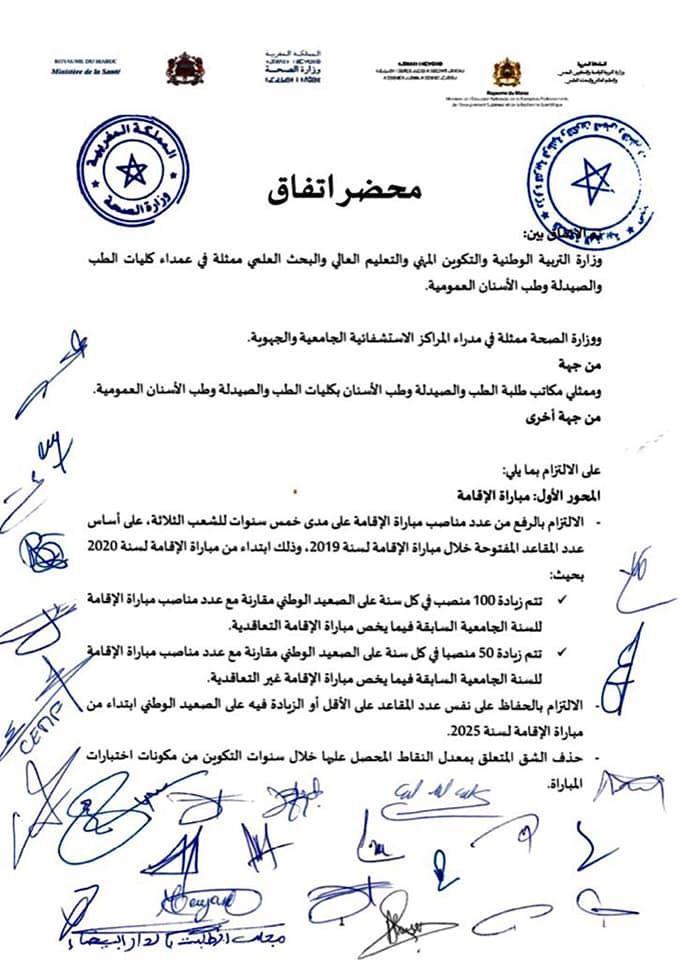 ROYAUME DU MAROC
Ministère de la Santé
المملكة المغربية
وزارة الصحة
Royaume du Maroc
المملكة المغربية
وزارة الصحة
محضر اتفاق
تم الاتفاق بين:
وزارة التربية الوطنية والتكوين المهني والتعليم العالي والبحث العلمي ممثلة في عمداء كليات الطب
والصيدلة وطب الأسنان العمومية.
ووزارة الصحة ممثلة في مدراء المراكز الاستشفائية الجامعية والجهوية.
من جهة
وممثلي مكاتب طلبة الطب والصيدلة وطب الأسنان بكليات الطب والصيدلة وطب الأسنان العمومية.
من جهة أخرى
على الالتزام بما يلي:
المحور الأول: مباراة الإقامة
- الالتزام بالرفع من عدد مناصب مباراة الإقامة على مدى خمس سنوات للشعب الثلاثة، على أساس
عدد المقاعد المفتوحة خلال مباراة الإقامة لسنة 2019، وذلك ابتداء من مباراة الإقامة لسنة 2020
بحيث:
✓ تتم زيادة 100 منصب في كل سنة على الصعيد الوطني مقارنة مع عدد مناصب مباراة الإقامة
للسنة الجامعية السابقة فيما يخص مباراة الإقامة التعاقدية.
✓ تتم زيادة 50 منصبا في كل سنة على الصعيد الوطني مقارنة مع عدد مناصب مباراة الإقامة
للسنة الجامعية السابقة فيما يخص مباراة الإقامة غير التعاقدية.
- الالتزام بالحفاظ على نفس عدد المقاعد على الأقل أو الزيادة فيه على الصعيد الوطني ابتداء من
مباراة الإقامة لسنة 2025.
- حذف الشق المتعلق بمعدل النقاط المحصل عليها خلال سنوات التكوين من مكونات اختبارات
المباراة.
مجلس الطلبة بالدار البيضاء